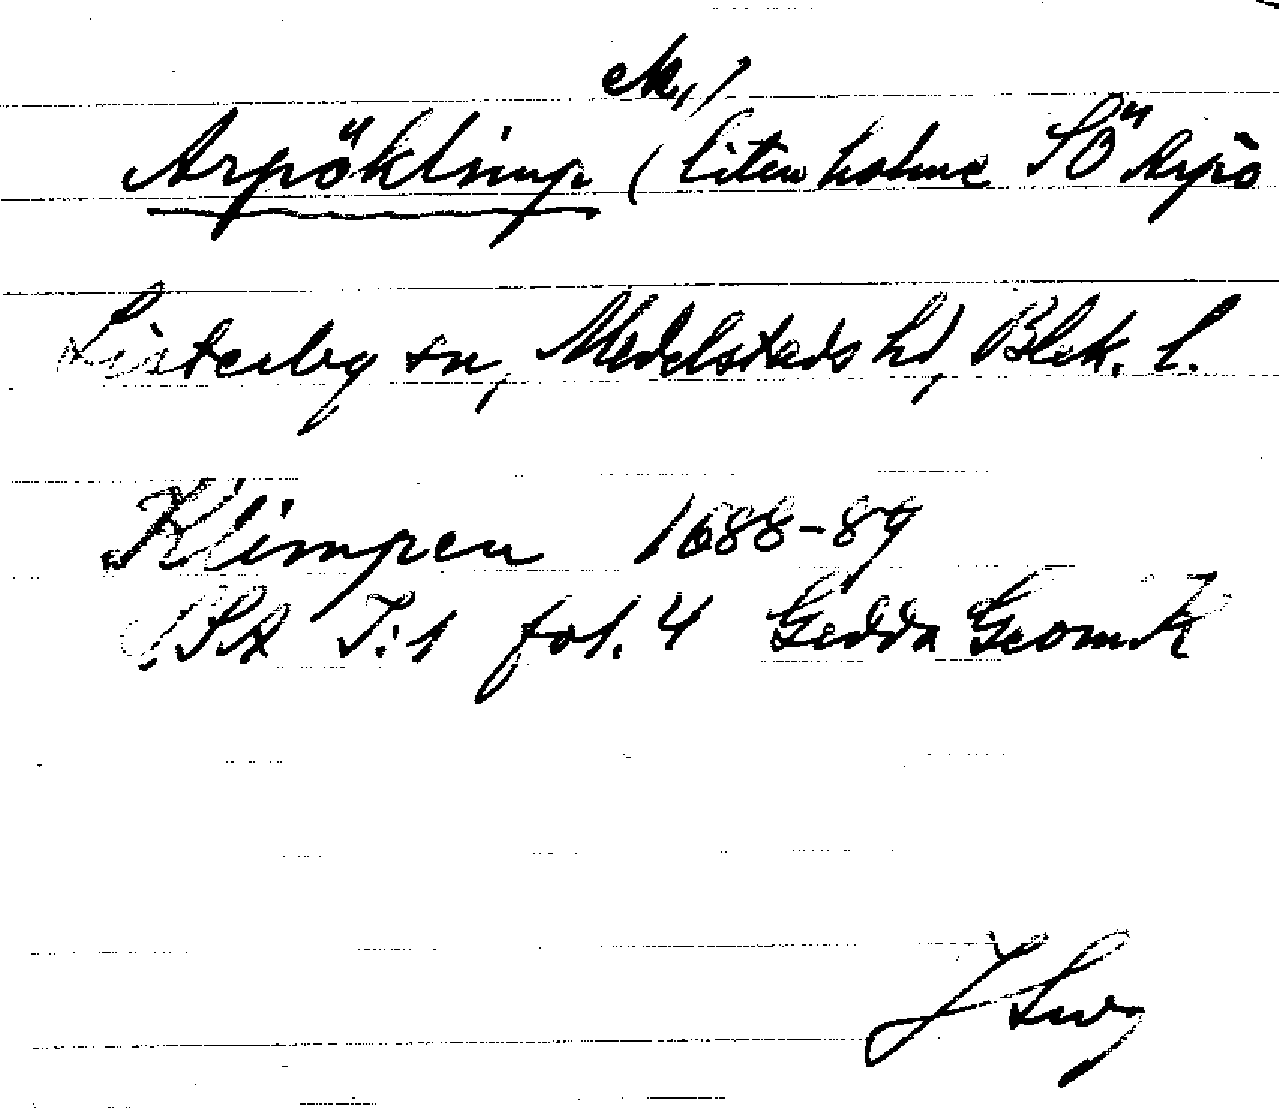 ek.,)
Arpöklimp (liten holme SÖ Arpö
Listerby sn, Medelstads hd, Blek. l.
Klimpen 1688-89
LSA I:1 fol. 4 Gedda Geom k